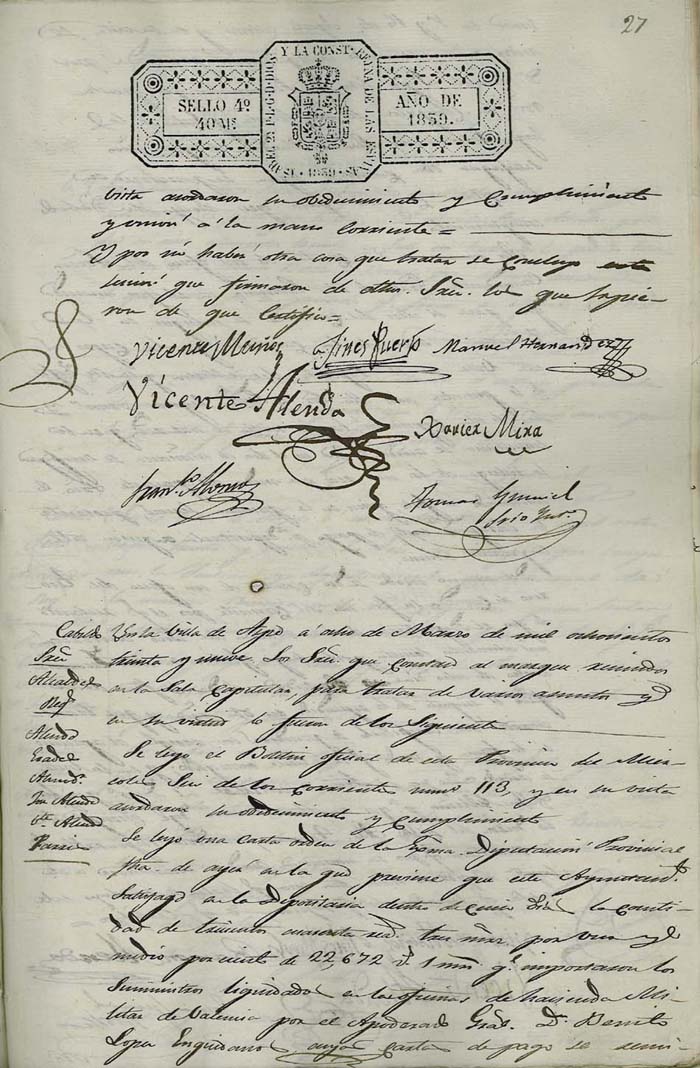 27
SELLO 4º
40 MS
YSABEL 2ª P. L. G. D. DIOS Y LA CONST. REYNA DE LAS ESPAÑAS
1839
AÑO DE
1839.
vista acordaron su obedecimiento y Cumplimiento
y union á la mano Corriente =
Y por no haber otra cosa que tratar se Concluyo esta
que firmaron de los que supie-
ron de que Certifico =
Vicente
Gines Puerto
Manuel Hernandez
Vicente Alenda
Xavier Mira
Fran.co Alonso
Tomas
Srio
Cabildo
Alcalde
Reg.
Alenda
Alenda
Alenda
En la Villa de Aspe á ocho de Marzo de mil ochocientos
treinta y nueve Los Sres. que Constan al margen reunidos
en la Sala Capitular, para tratar de varios asuntos y
en su virtud lo fueron de los Siguiente
Se leyó el Boletin oficial de esta Provincia del Mier-
coles Seis de los Corriente num.o 113, y en su vista
acordaron su obedecimiento y cumplimiento
Se leyó una Carta orden de la Exma. Diputacion Provincial
fha. de ayer en la que previene que este Ayuntam.to
Satisfaga en la Depositaria dentro de la Canti-
dad de tres mrs. por uno y
medio por ciento de 22,672 r. 1 mrs. q. importaron los
Suministros liquidados en las oficinas de hacienda Mi-
litar de Valencia por el Apoderado Gral. D. Benito
Lopez Enguidanos cuya Carta de pago se